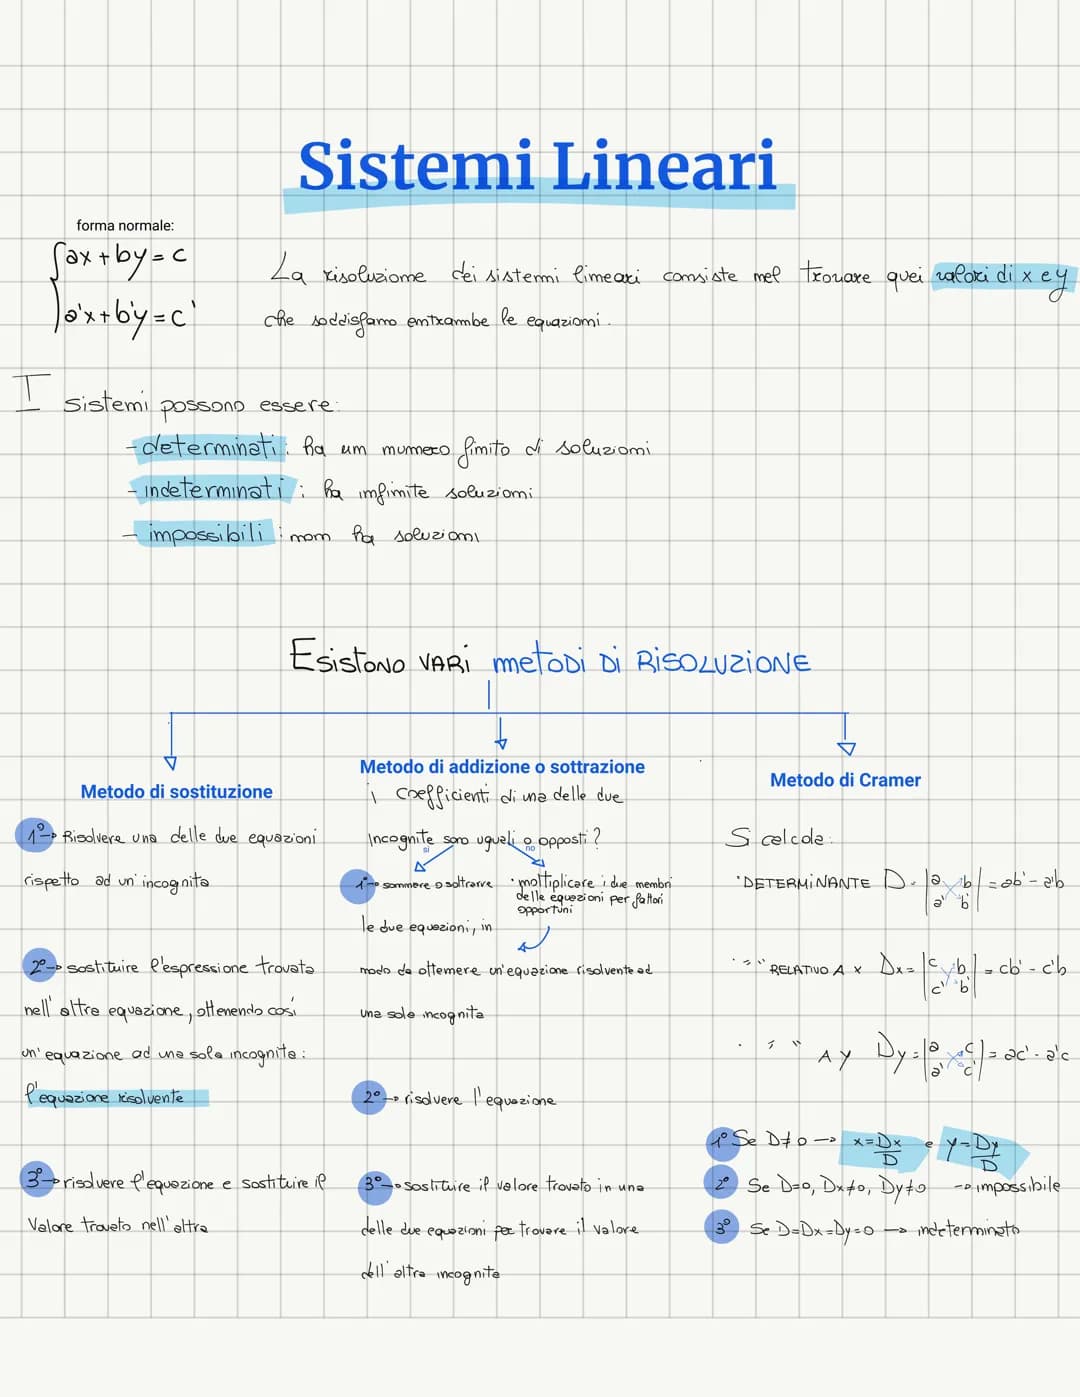 Sistemi Lineari
forma normale:
ax + by = c
a'x + b'y = c'
La risoluzione dei sistemi lineari consiste nel trovare quei valori di x e y
che soddisfano entrambe le equazioni.
I sistemi possono essere:
- determinati: ha un numero finito di soluzioni
- indeterminati: ha infinite soluzioni
- impossibili: non ha soluzioni
Esistono vari metodi di RISOLUZIONE
Metodo di sostituzione
1° → Risolvere una delle due equazioni
rispetto ad un'incognita
2° → sostituire l'espressione trovata
nell'altra equazione, ottenendo così
un'equazione ad una sola incognita:
l'equazione risolvente
3° → risolvere l'equazione e sostituire il
Valore trovato nell'altra
Metodo di addizione o sottrazione
i coefficienti di una delle due
Incognite sono uguali o opposti?
si
no
1° → sommare o sottrarre
le due equazioni, in
· moltiplicare i due membri
delle equazioni per fattori
opportuni
modo da ottenere un'equazione risolvente ad
una sola incognita
2° → risolvere l'equazione
3° → sostituire il valore trovato in una
delle due equazioni per trovare il valore
dell'altra incognita
Metodo di Cramer
Si calcola:
· DETERMINANTE D = |a b a' b'| = ab' - a'b
· " " RELATIVO A x Dx = |c b c' b'| = cb' - c'b
· " " A Y Dy = |a c a' c'| = ac' - a'c
1° Se D≠0 → x = Dx/D e y = Dy/D
2° Se D=0, Dx≠0, Dy≠0 → impossibile
3° Se D=Dx=Dy=0 → indeterminato